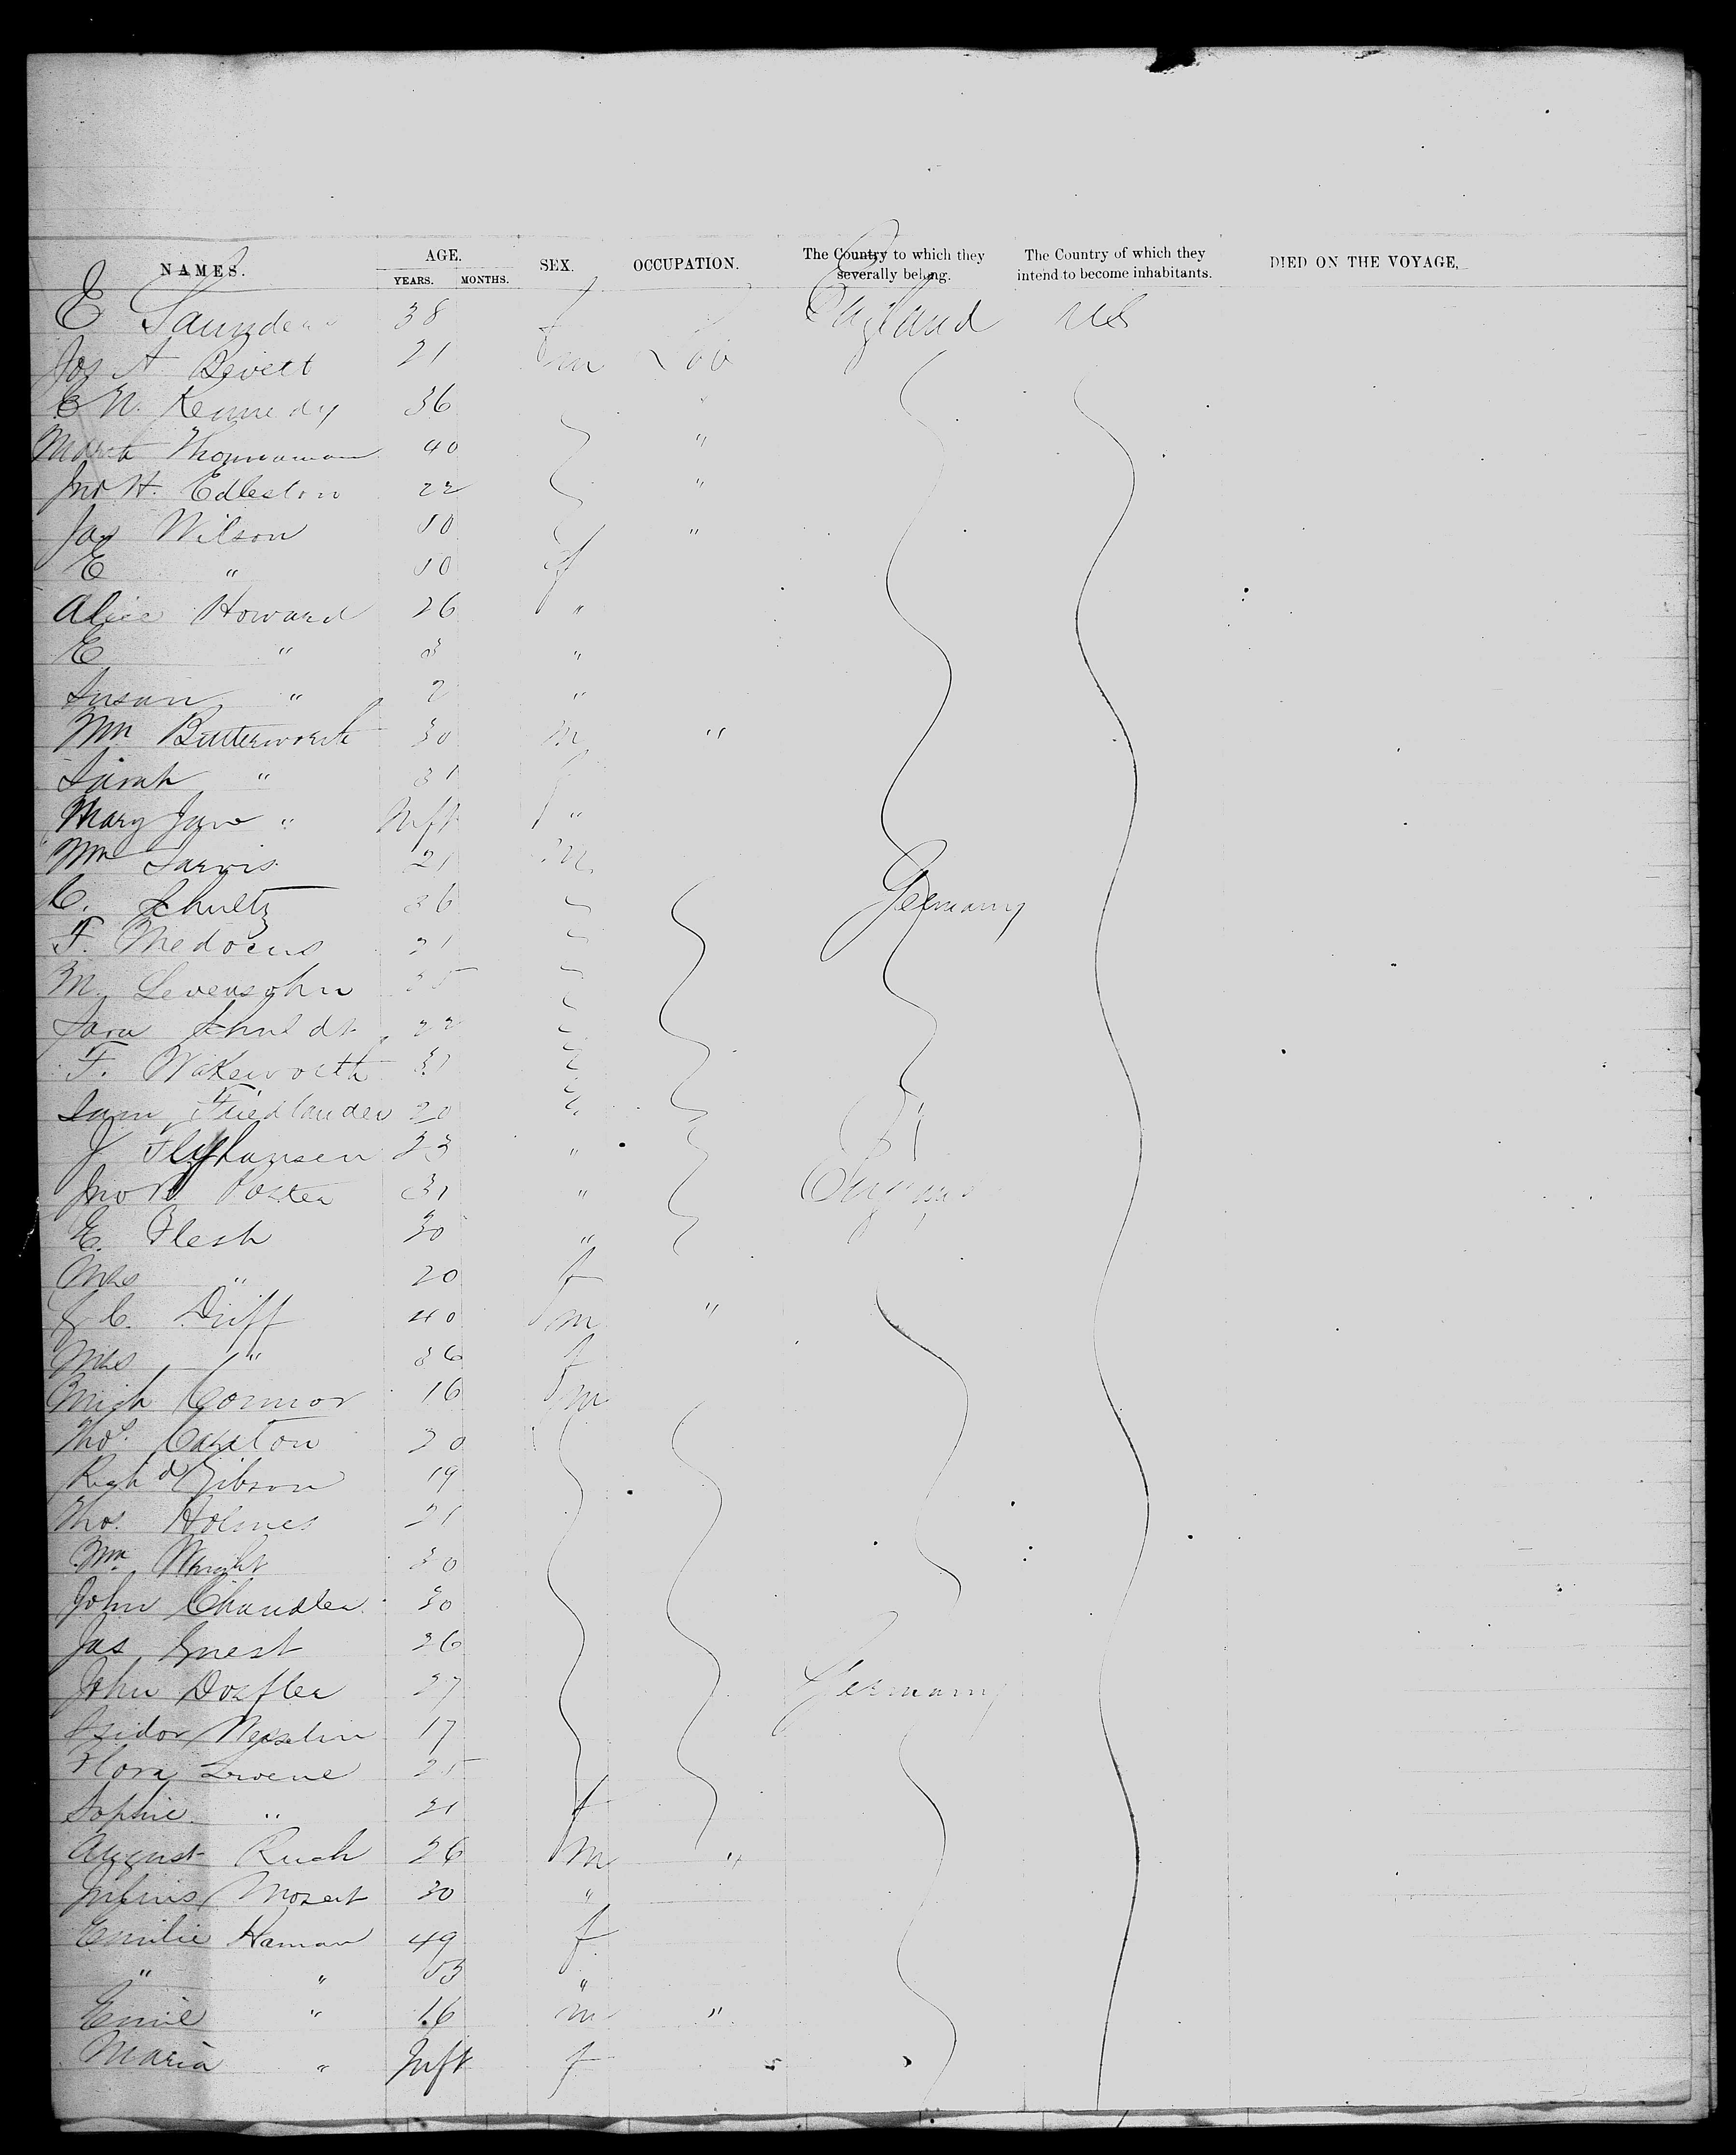 NAMES. AGE. YEARS. MONTHS. SEX. OCCUPATION. The Country to which they severally belong. The Country of which they intend to become inhabitants. DIED ON THE VOYAGE.
E Saunders 38 f England US
Jos A 21 m Lab
E N. Kennedy 36
40 "
Jno H. Edleston 22 "
Jas Wilson 50 "
E " 50 f
Alice Howard 26 "
E " 3 "
Susan " 2 "
Wm Butterworth 30 m "
Sarah " 31 f
Mary Jane " Inft "
Wm Jarvis 21 m
C. Schultz 36 Germany
F. 21
M. Levensohn 35
Sara 22
F. Wakeworth 31
Sam Friedlander 20
J 23 "
Jno R. 31 " England
E. Flesh 30 "
Mrs " 20 f
J. C. Duff 40 m "
Mrs " 36 f
Mich Connor 16 m
Thos. Carlton 20
Richd Gibson 19
Thos. Holmes 21
Wm Wright 30
John Chandler 30
Jas Guest 26
John Dorfler 27 Germany
Isidor 17
Flora 25
Sophie " 21 f
August Ruch 26 m "
Julius Mozart 30 "
Emilie Haman 49 f
" " 53 "
Emil " 16 m "
Maria " Inft f